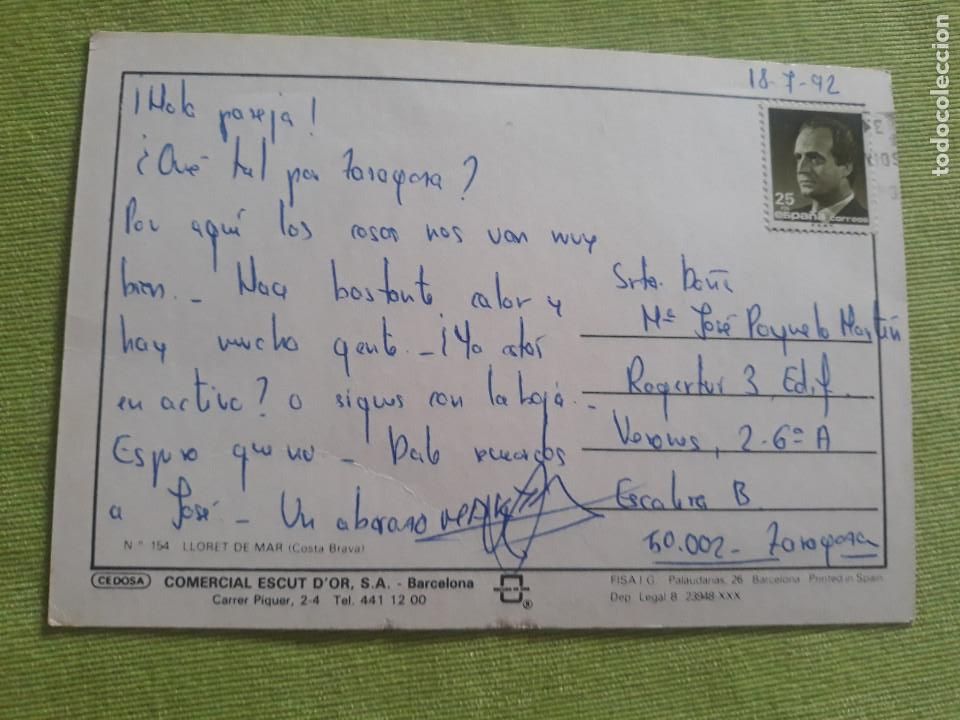 18-7-92
¡Hola pareja!
¿Qué tal por Zaragoza?
Por aquí las cosas nos van muy
bien._ Hace bastante calor y
hay mucha gente._ ¡Ya estás
en activo? o sigues con la baja._
Espero que no _ Dale recuerdos
a José _ Un abrazo
25
españa correos
Srta. Doña
Mª José Poyuelo Martín
Rogertur 3, Edif.
2-6º A
Escalera B.
50.002- Zaragoza
Nº 154 LLORET DE MAR (Costa Brava)
CEDOSA COMERCIAL ESCUT D'OR, S.A. - Barcelona
Carrer Piquer, 2-4 Tel. 441 12 00
FISA I.G. Palaudarias, 26 Barcelona Printed in Spain
Dep. Legal B. 23948-XXX
todocoleccion